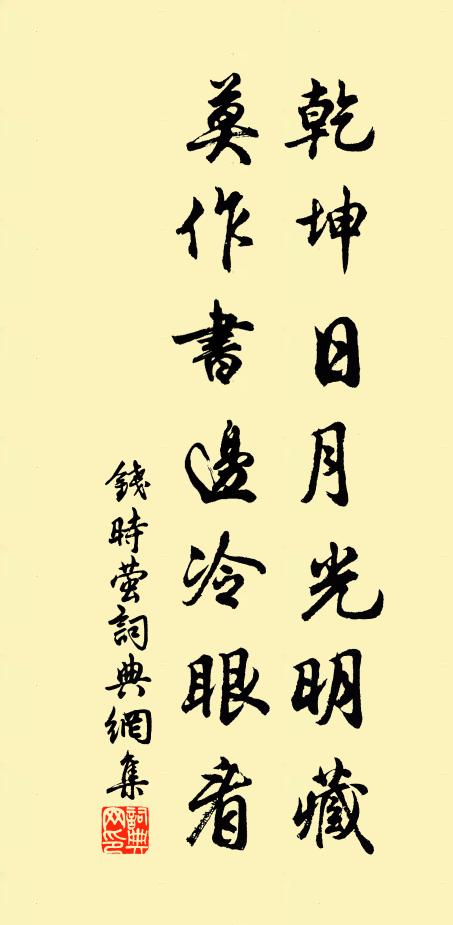 乾坤日月光明藏
莫作書邊冷眼看
錢時螢詞典網集
詞典網印